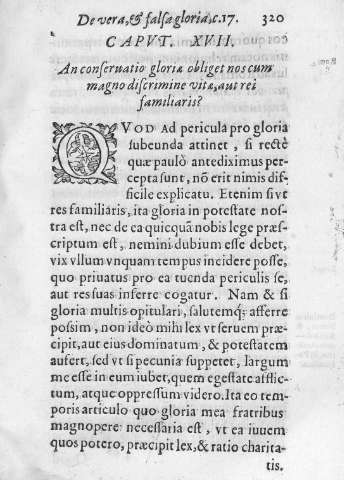 De vera, & falsa gloria, c.17. 320
CAPVT. XVII.
An conseruatio gloriæ obliget nos cum
magno discrimine vitæ, aut rei
familiaris?
QVOD Ad pericula pro gloria
subeunda attinet, si rectè
quæ paulò antediximus per-
cepta sunt, nõ erit nimis dif-
ficile explicatu. Etenim sivt
res familiaris, ita gloria in potestate nos-
tra est, nec de ea quicquã nobis lege præs-
criptum est, nemini dubium esse debet,
vix vllum vnquam tempus incidere posse,
quo priuatus pro ea tuenda periculis se,
aut res suas inferre cogatur. Nam & si
gloria multis opitulari, salutemq; afferre
possim, non ideò mihi lex vt seruem præ-
cipit, aut eius dominatum, & potestatem
aufert, sed vt si pecunia suppetet, largum
me esse in eum iubet, quem egestate afflic-
tum, atque oppressum videro. Ita eo tem-
poris articulo quo gloria mea fratribus
magnopere necessaria est, vt ea iuuem
quos potero, præcipit lex, & ratio charita-
tis.